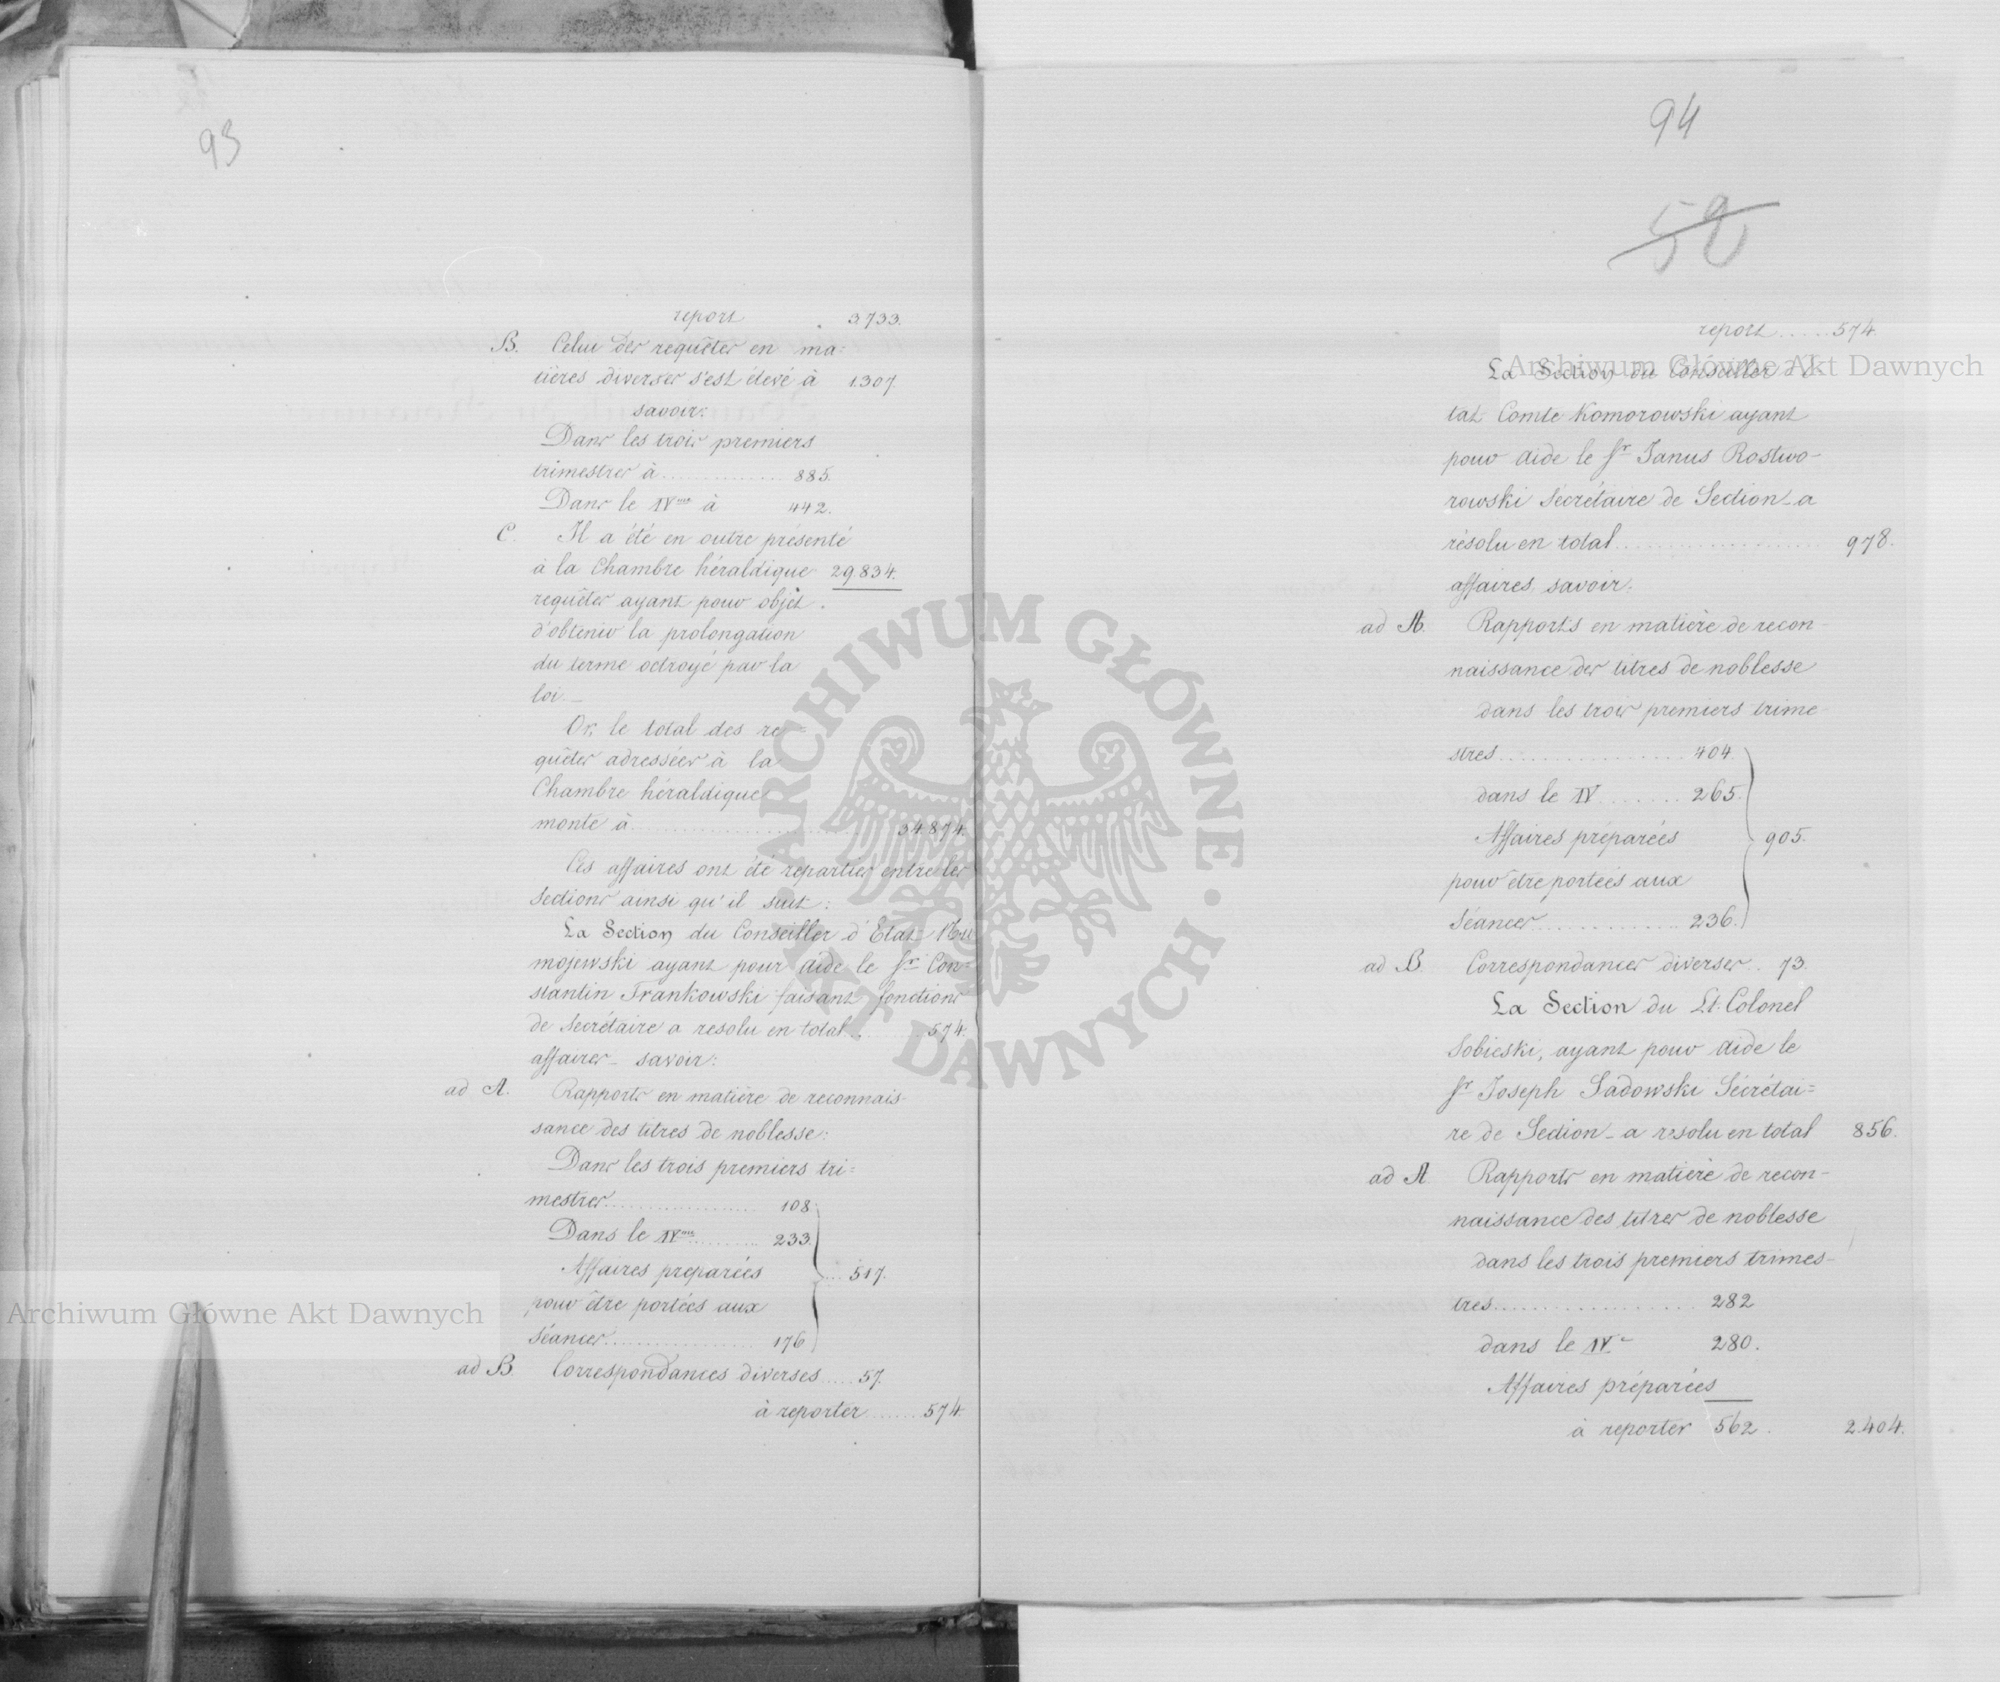 93
report 3733.
B. Celui des requêtes en ma=
tières diverses s'est élevé à 1307.
savoir:
Dans les trois premiers
trimestres à 885.
Dans le IVme à 442.
C. Il a été en outre présenté
à la Chambre héraldique 29834.
requêtes ayant pour objet
d'obtenir la prolongation
du terme octroyé par la
loi._
Or, le total des re=
quêtes adressées à la
Chambre héraldique
monte à 34874.
Ces affaires ont été reparties entre les
sections ainsi qu'il suit:
La Section du Conseiller d'Etat
mojewski ayant pour aide le Sr Con=
stantin Frankowski faisant fonctions
de Secrétaire a resolu en total 574.
affaires_ savoir:
ad A. Rapports en matière de reconnais-
sance des titres de noblesse:
Dans les trois premiers tri=
mestres 108
Dans le IVme 233.
Affaires preparées 517.
pour être portées aux
séances 176
ad B Correspondances diverses 57.
à reporter 574.
94
52
report 574
La Section du Conseiller d'E-
tat Comte Komorowski ayant
pour aide le Sr Janus Rostwo-
rowski Sécrétaire de Section_a
résolu en total 978.
affaires, savoir:
ad A. Rapports en matière de recon-
naissance des titres de noblesse
dans les trois premiers trime-
stres 404.
dans le IV 265.
Affaires préparées 905.
pour être portées aux
Séances 236.
ad B. Correspondances diverses 73.
La Section du Lt: Colonel
Sobieski, ayant pour aide le
Sr Joseph Sadowski Sécrétai=
re de Section_a resolu en total 856.
ad A Rapports en matière de recon-
naissance des titres de noblesse
dans les trois premiers trimes-
tres 282
dans le IVe 280.
Affaires préparées
à reporter 562. 2404.
Archiwum Główne Akt Dawnych
Archiwum Główne Akt Dawnych
ARCHIWUM GŁÓWNE · AKT DAWNYCH ·